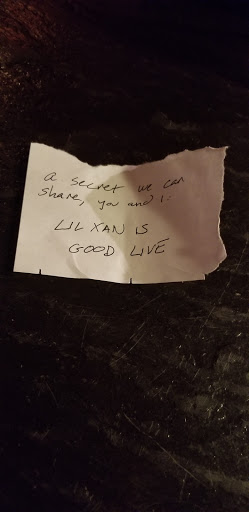 a secret we can
share, you and I:
LIL XAN IS
GOOD LIVE